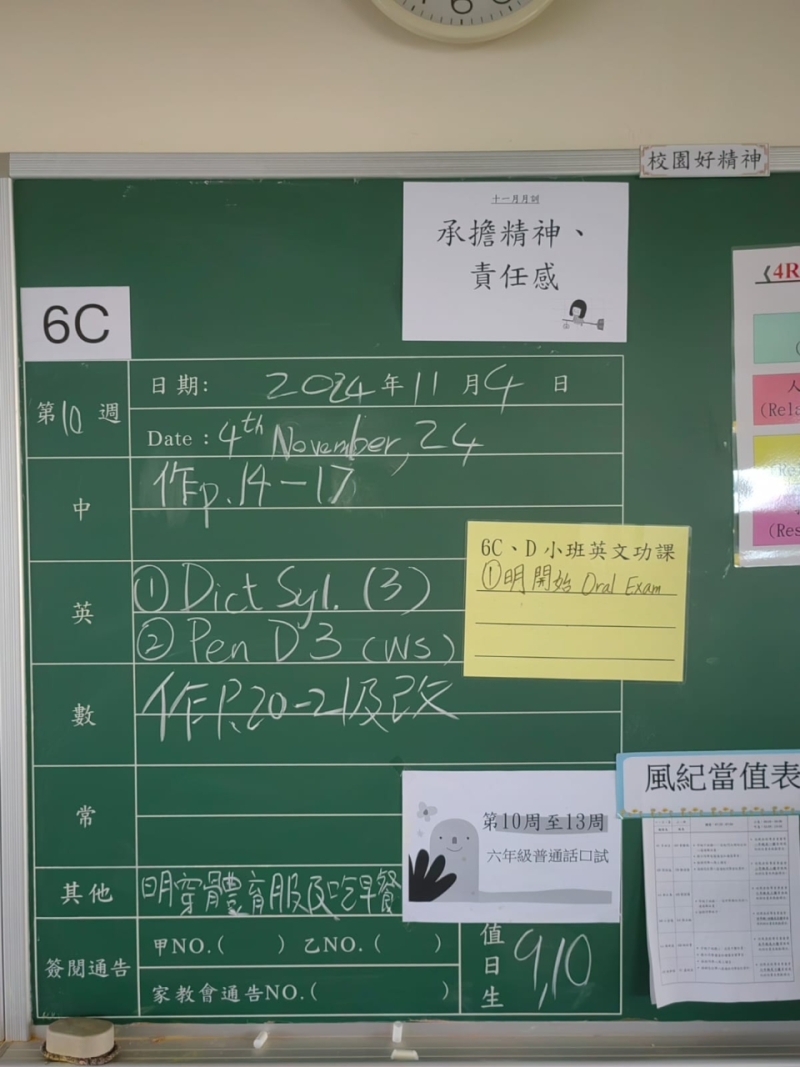 6
校園好精神
十一月月訓
承擔精神、
責任感
《4R
6C
第10週
日期: 2024年11月4日
Date : 4th November, 24
中
作p.14-17
英
① Dict Syl. (3)
② Pen D3 (WS)
6C、D 小班英文功課
①明開始 Oral Exam
數
作P.20-21及改
人
(Rela
(Res
常
第10周至13周
六年級普通話口試
風紀當值表
其他
明穿體育服及吃早餐
簽閱通告
甲NO.( ) 乙NO.( )
家教會通告NO.( )
值日生
9,10